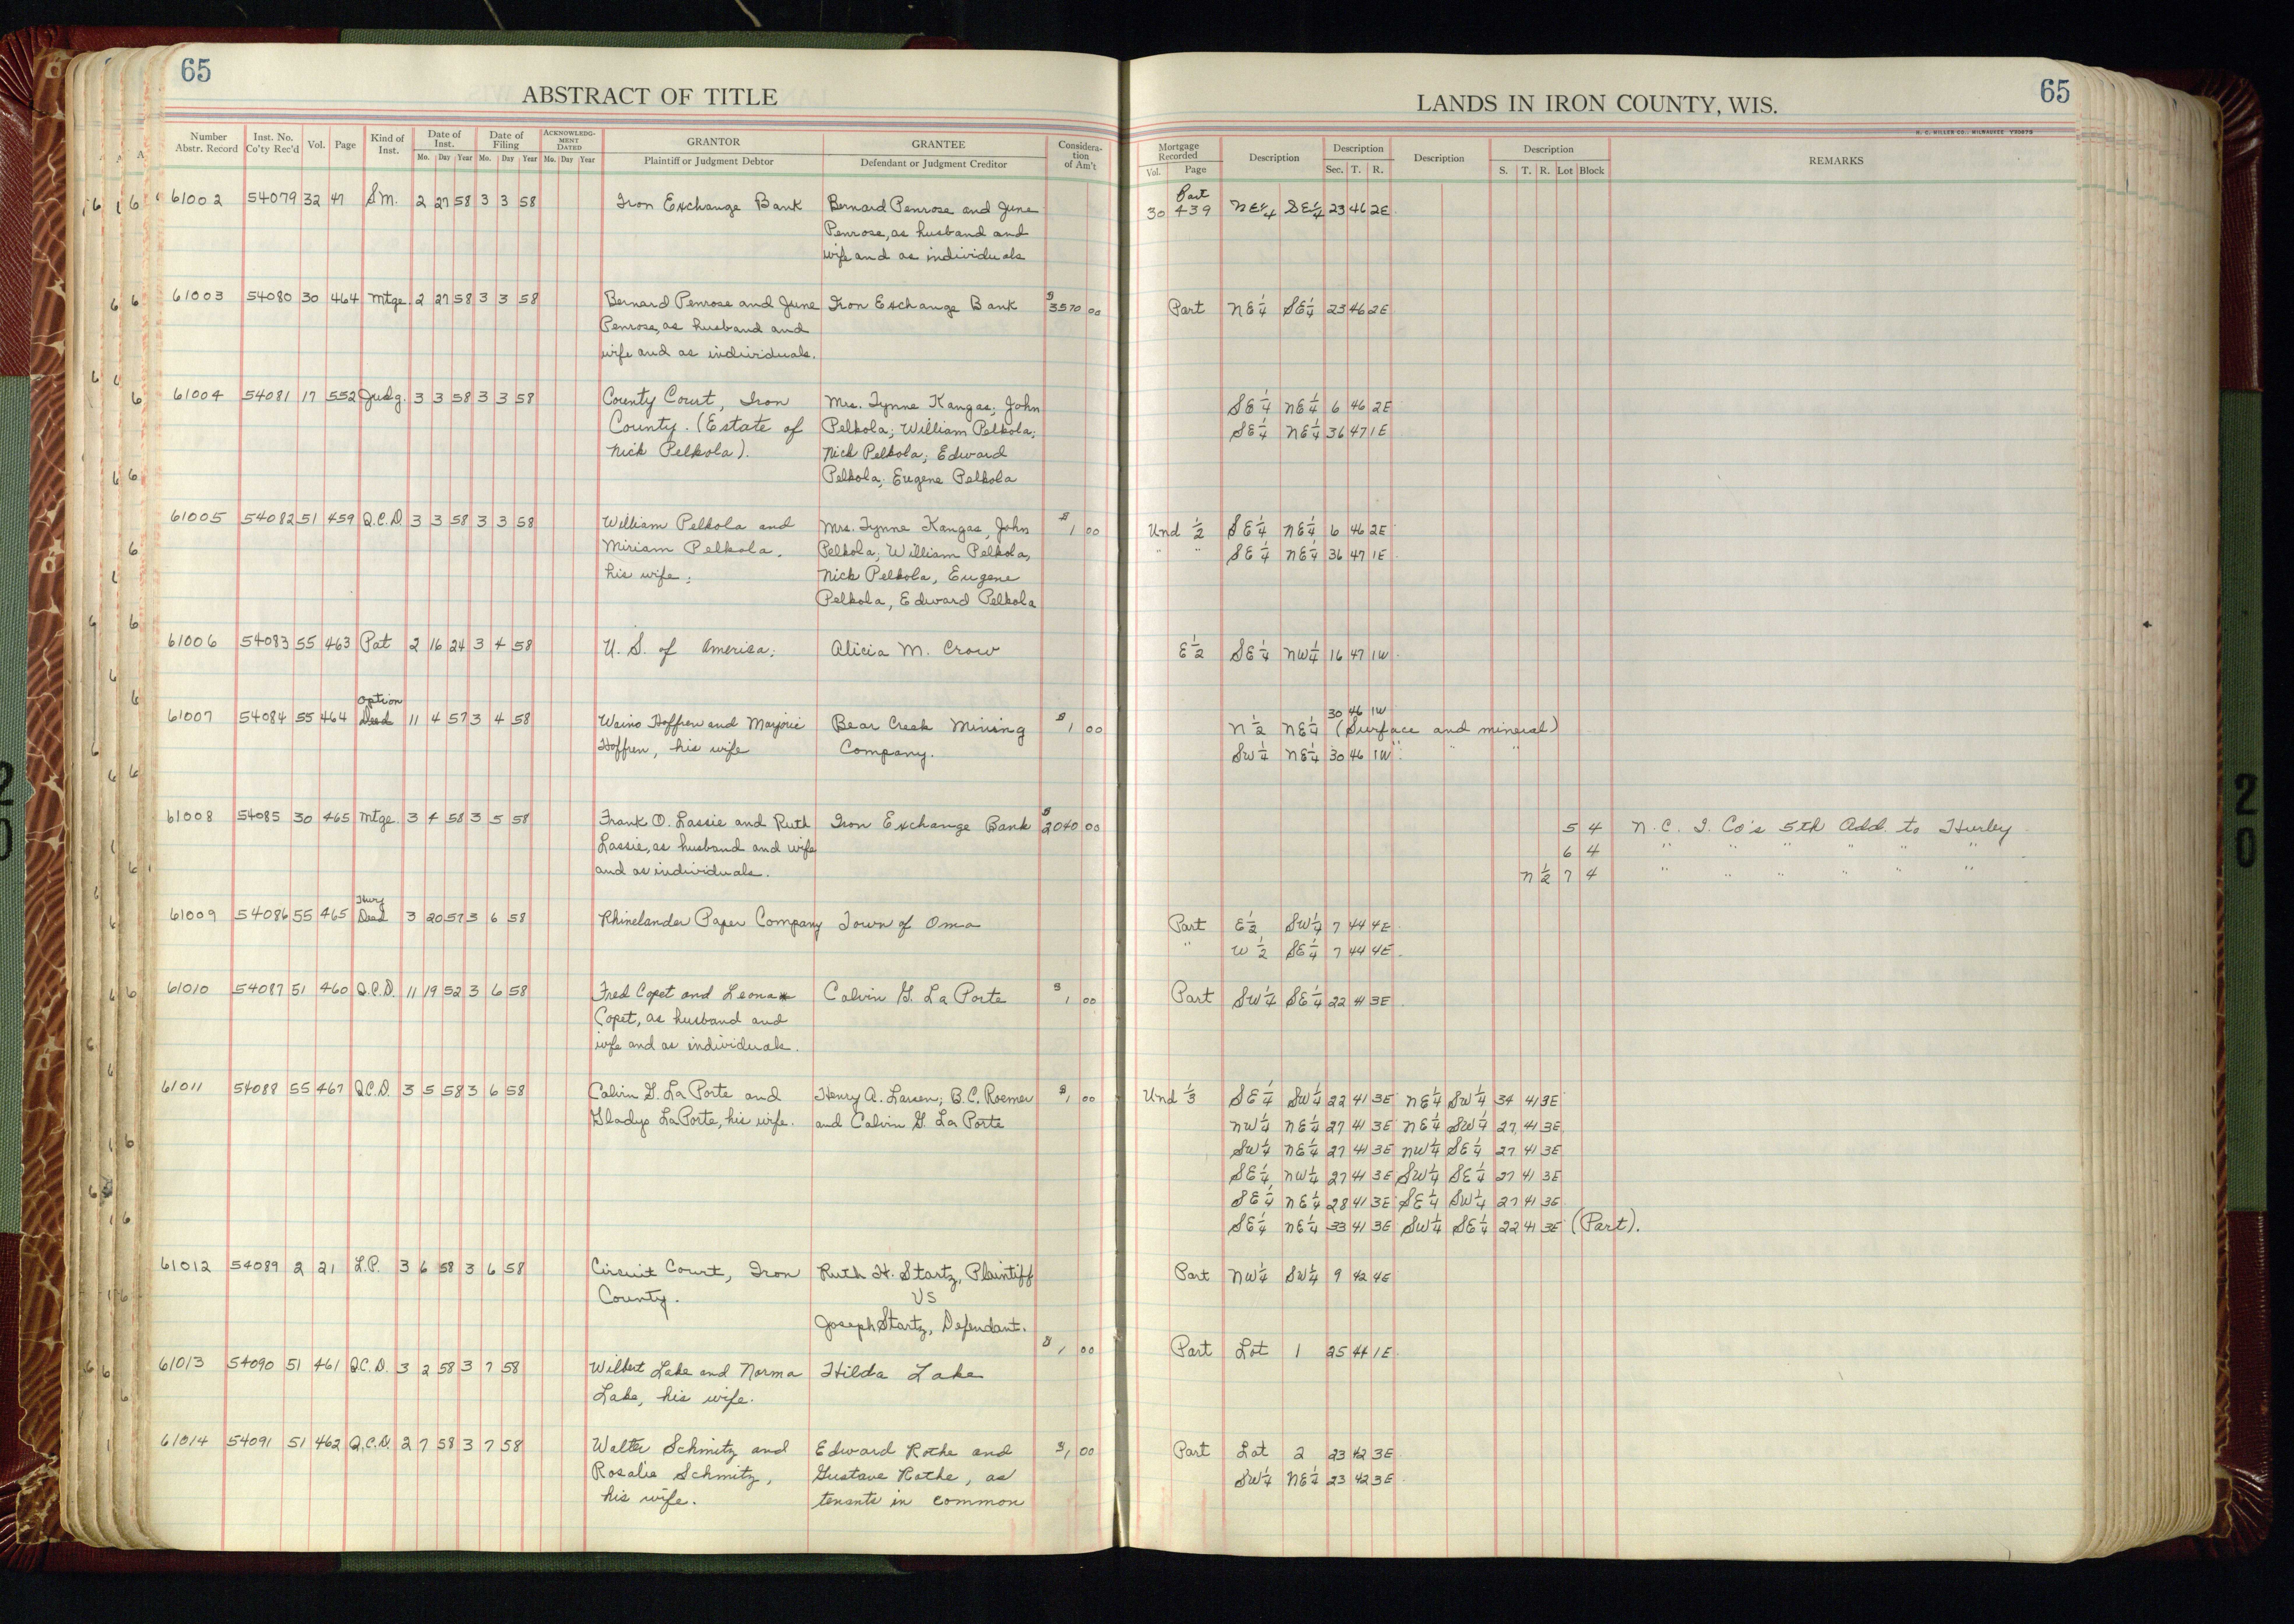 65
ABSTRACT OF TITLE
Number Abstr. Record | Inst. No. Co'ty Rec'd | Vol. | Page | Kind of Inst. | Date of Inst. Mo. Day Year | Date of Filing Mo. Day Year | ACKNOWLEDGMENT DATED Mo. Day Year | GRANTOR Plaintiff or Judgment Debtor | GRANTEE Defendant or Judgment Creditor | Consideration of Am't
61002 54079 32 47 S.M. 2 27 58 3 3 58 Iron Exchange Bank Bernard Penrose and June
Penrose, as husband and
wife and as individuals
61003 54080 30 464 Mtge. 2 27 58 3 3 58 Bernard Penrose and June Iron Exchange Bank $3570 00
Penrose, as husband and
wife and as individuals.
61004 54081 17 552 Judg. 3 3 58 3 3 58 County Court, Iron Mrs. Tynne Kangas; John
County. (Estate of Pelkola; William Pelkola;
Nick Pelkola). Nick Pelkola; Edward
Pelkola; Eugene Pelkola
61005 54082 51 459 Q.C.D. 3 3 58 3 3 58 William Pelkola and Mrs. Tynne Kangas, John $1 00
Miriam Pelkola, Pelkola; William Pelkola,
his wife; Nick Pelkola, Eugene
Pelkola, Edward Pelkola
61006 54083 55 463 Pat 2 16 24 3 4 58 U. S. of America; Alicia M. Crow
Option
61007 54084 55 464 Deed 11 4 57 3 4 58 Waino Hoffren and Marjorie Bear Creek Mining $1 00
Hoffren, his wife Company.
61008 54085 30 465 Mtge. 3 4 58 3 5 58 Frank O. Lassie and Ruth Iron Exchange Bank $2040 00
Lassie, as husband and wife
and as individuals.
61009 54086 55 465 Deed 3 20 57 3 6 58 Rhinelander Paper Company Town of Oma
61010 54087 51 460 Q.C.D. 11 19 52 3 6 58 Fred Copet and Leona Calvin G. La Porte $1 00
Copet, as husband and
wife and as individuals.
61011 54088 55 467 Q.C.D. 3 5 58 3 6 58 Calvin G. La Porte and Henry A. Larsen; B.C. Roemer $1 00
Gladys LaPorte, his wife. and Calvin G. La Porte
61012 54089 2 21 L.P. 3 6 58 3 6 58 Circuit Court, Iron Ruth H. Startz, Plaintiff
County. VS
Joseph Startz, Defendant.
61013 54090 51 461 Q.C.D. 3 2 58 3 7 58 Wilbert Lake and Norma Hilda Lake $1 00
Lake, his wife.
61014 54091 51 462 Q.C.D. 2 7 58 3 7 58 Walter Schmitz and Edward Rothe and $1 00
Rosalie Schmitz, Gustave Rothe, as
his wife. tenants in common
65
LANDS IN IRON COUNTY, WIS.
H. C. MILLER CO., MILWAUKEE
Mortgage Recorded Vol. Page | Description | Description Sec. T. R. | Description | Description S. T. R. Lot Block | REMARKS
Part
30 439 NE¼ SE¼ 23 46 2E
Part NE¼ SE¼ 23 46 2E
SE¼ NE¼ 6 46 2E
SE¼ NE¼ 36 47 1E
Und ½ SE¼ NE¼ 6 46 2E
" " SE¼ NE¼ 36 47 1E
E½ SE¼ NW¼ 16 47 1W
30 46 1W
N½ NE¼ (Surface and mineral)
SW¼ NE¼ 30 46 1W " " "
5 4 N.C. I. Co's 5th Add. to Hurley
6 4 " " " " " "
N½ 7 4 " " " " " "
Part E½ SW¼ 7 44 4E
" W½ SE¼ 7 44 4E
Part SW¼ SE¼ 22 41 3E
Und ⅓ SE¼ SW¼ 22 41 3E NE¼ SW¼ 34 41 3E
NW¼ NE¼ 27 41 3E NE¼ SW¼ 27 41 3E
SW¼ NE¼ 27 41 3E NW¼ SE¼ 27 41 3E
SE¼ NW¼ 27 41 3E SW¼ SE¼ 27 41 3E
SE¼ NE¼ 28 41 3E SE¼ SW¼ 27 41 3E
SE¼ NE¼ 33 41 3E SW¼ SE¼ 22 41 3E (Part).
Part NW¼ SW¼ 9 42 4E
Part Lot 1 25 44 1E
Part Lot 2 23 42 3E
SW¼ NE¼ 23 42 3E
20